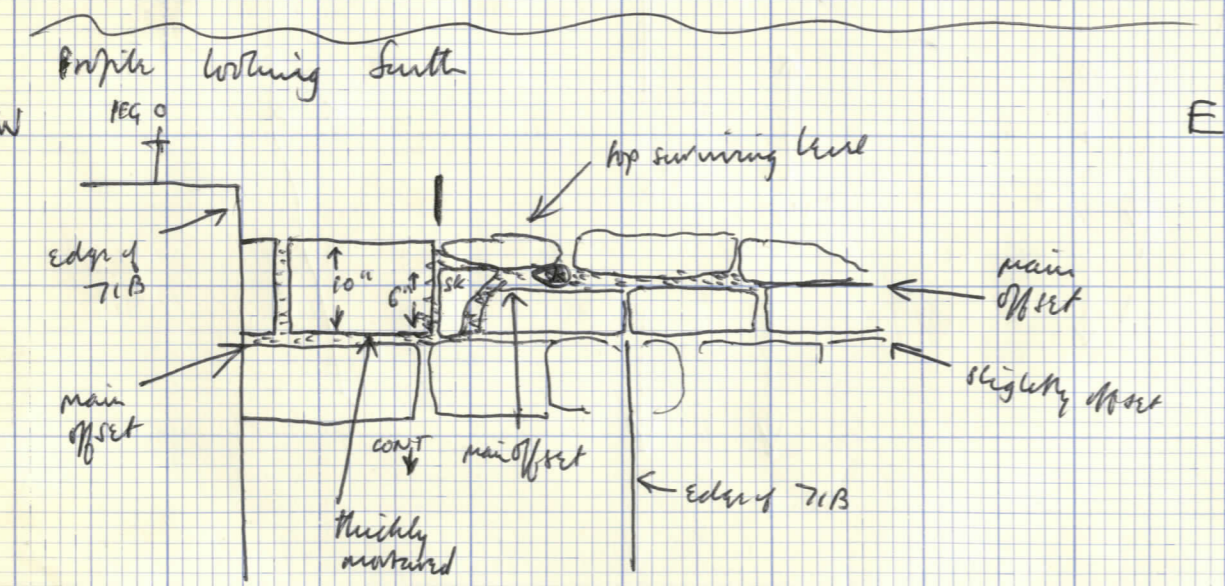 Profile looking South
W
PEG 0
E
top surviving level
edge of
71B
10"
6"
SK
main
offset
main
offset
slightly offset
CONT
main offset
edge of 71B
thickly
mortared